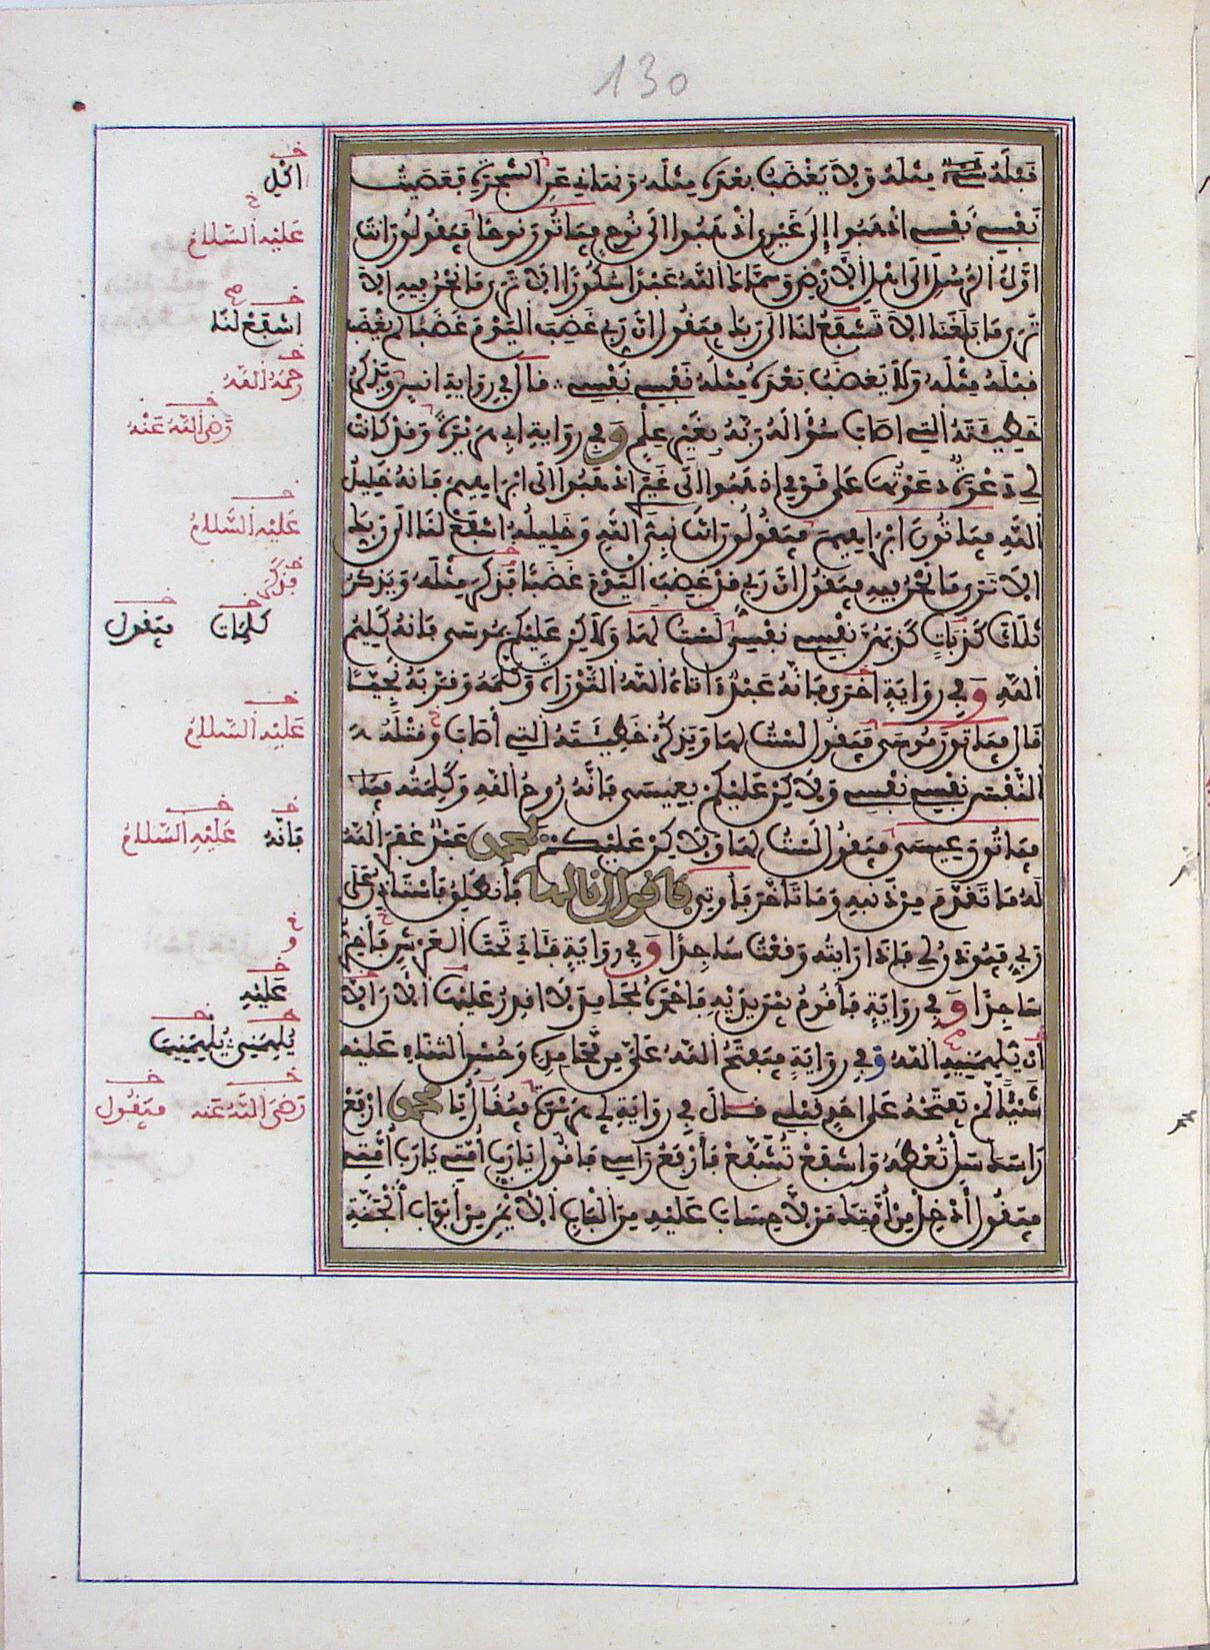 130
قبله مثله ولا يغضب بعده مثله ونهاني عن الشجرة فعصيت
نفسي نفسي اذهبوا إلى غيري اذهبوا الى نوح فياتون نوحا فيقولون انت
اول الرسل الى اهل الارض وسماك الله عبدا شكورا الا ترى ما نحن فيه الا
ترى ما بلغنا الا تشفع لنا الى ربك فيقول ان ربي غضب اليوم غضبا لم يغضب
قبله مثله ولا يغضب بعده مثله نفسي نفسي قال في رواية انس ويذكر
خطيئته التي اصاب سؤاله ربه بغير علم وفي رواية ابي هريرة وقد كانت
لي دعوة دعوتها على قومي اذهبوا الى غيري اذهبوا الى ابراهيم فانه خليل
الله فياتون ابراهيم فيقولون انت نبي الله وخليله اشفع لنا الى ربك
الا ترى ما نحن فيه فيقول ان ربي قد غضب اليوم غضبا فذكر مثله ويذكر
ثلاث كذبات كذبهن نفسي نفسي لست لها ولاكن عليكم بموسى فانه كليم
الله وفي رواية اخرى فانه عبد اتاه الله التوراة وكلمه وقربه نجيا
قال فياتون موسى فيقول لست لها ويذكر خطيئته التي أصاب وقتله
النفس نفسي نفسي ولاكن عليكم بعيسى فانه روح الله وكلمته
فياتون عيسى فيقول لست لها ولاكن عليكم بمحمد عبد غفر الله
له ما تقدم من ذنبه وما تاخر فأوتى فاقول انا لها فأنطلق فأستاذن على
ربي فيوذن لي فاذا رايته وقعت ساجدا وفي رواية فئاتي تحت العرش فأخر
ساجدا وفي رواية فأقوم بين يديه فاحمده بمحامد لا اقدر عليها الان الا
أن يلهمنيه الله وفي رواية فيفتح الله علي من محامده وحسن الثناء عليه
شيئا لم يفتحه على احد قبلي قال في رواية ابي هريرة فيقال يا محمد ارفع
راسك سل تعطه واشفع تشفع فأرفع راسي فاقول يا رب أمتي يا رب أمتي
فيقول أدخل من أمتك من لا حساب عليه من الباب الايمن من أبواب الجنة
اهل
عليه السلام
اشفع لنا
رحمه الله
رضي الله عنه
عليه السلام
فذكر
كلمات فيقول
عليه السلام
فانه عليه السلام
و
عليه
يلهمني يلهمنيها
رضي الله عنه فيقول